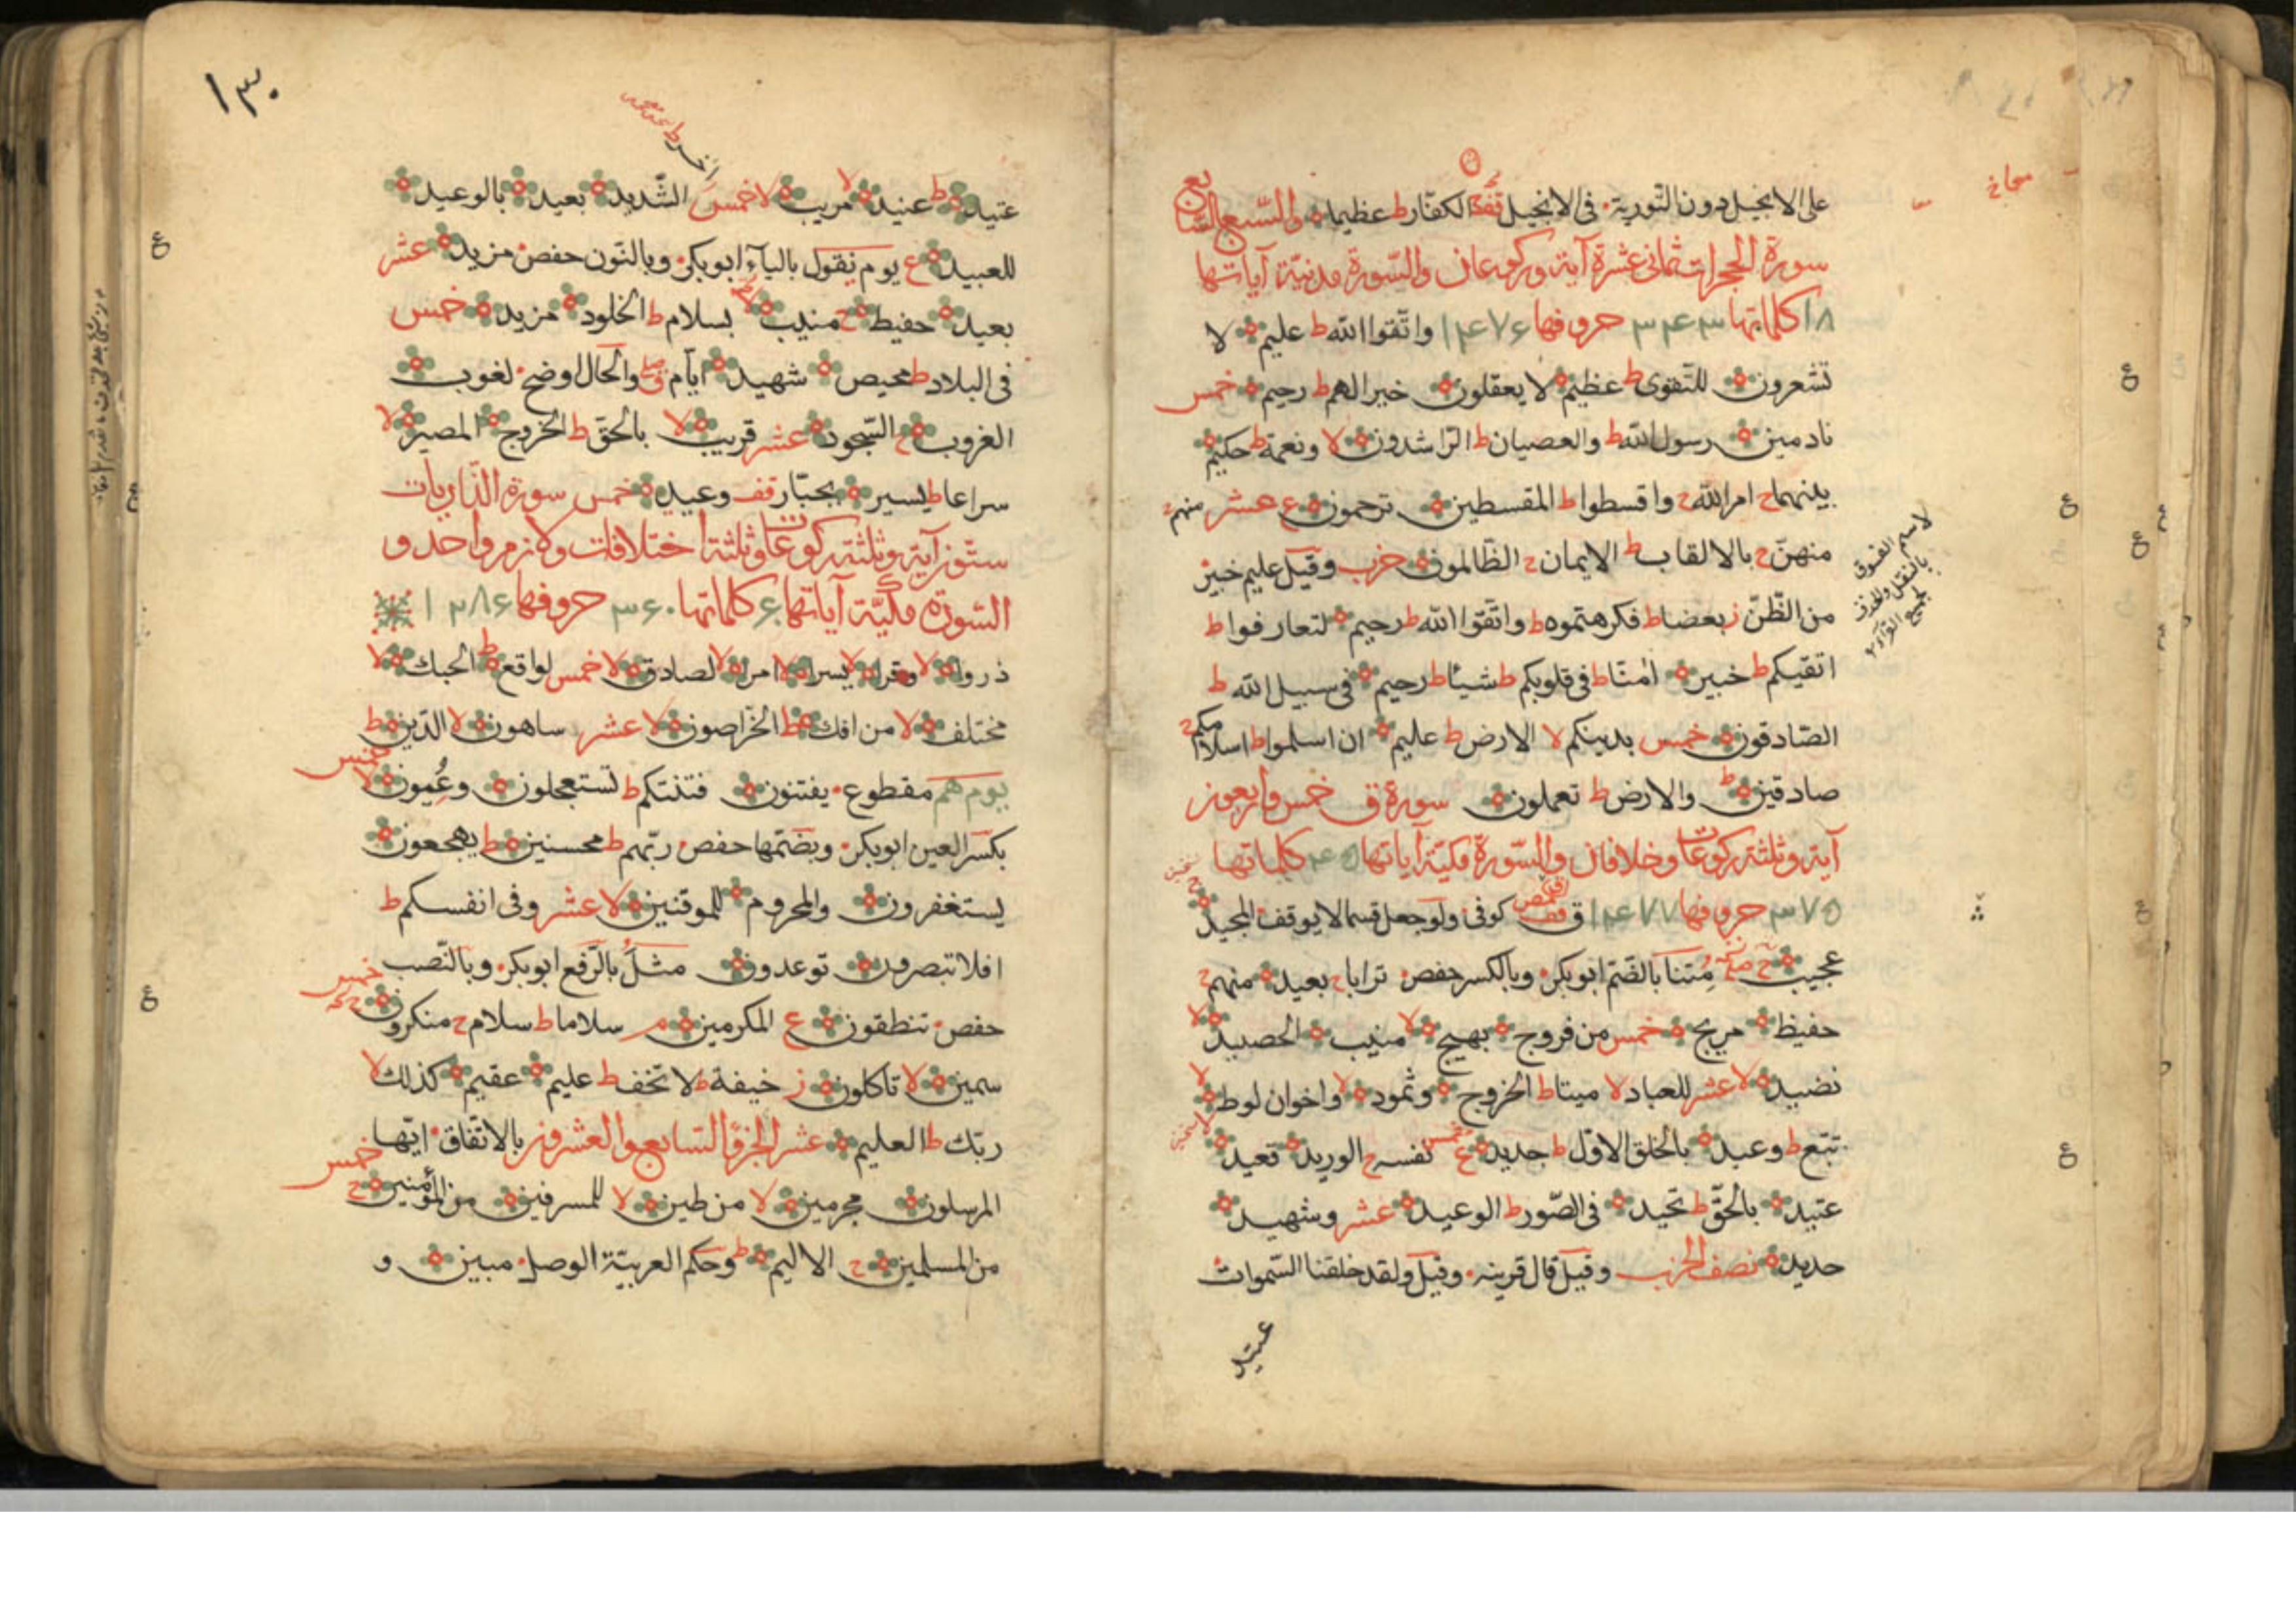 على الانجيل دون التورية في الانجيل قف الكفار ط عظيما والسبع السابع
سورة الحجرات ثماني عشرة آية وركوعان والسورة مدنية آياتها
١٨ كلماتها ٣٤٣ حروفها ١٤٧٦ واتقوا الله ط عليم لا
تشعرون للتقوى ط عظيم لا يعقلون خيرا لهم ط رحيم خمس
نادمين رسول الله ط والعصيان ط الراشدون لا ونعمة ط حكيم
بينهما ج امر الله ج واقسطوا ط المقسطين ترحمون ع عشر منهم ج
منهن ج بالالقاب ط الايمان ج الظالمون حزب وقيل عليم خبير
من الظن ز بعضا ط فكرهتموه ط واتقوا الله ط رحيم لتعارفوا ط
اتقيكم ط خبير امنا ط في قلوبكم ط شيئا ط رحيم في سبيل الله ط
الصادقون خمس بدينكم لا الارض ط عليم ان اسلموا ط اسلامكم ج
صادقين ط والارض ط تعملون سورة ق خمس واربعون
آية وثلثة ركوعات وخلافان والسورة مكية آياتها ٤٥ كلماتها
٣٧٥ حروفها ١٤٧٧ ق قف كوفي ولو جعل قسما لا يوقف المجيد
عجيب ج متنا بالضم ابوبكر وبالكسر حفص ترابا ج بعيد منهم ج
حفيظ مريج خمس من فروج بهيج لا منيب الحصيد لا
نضيد لا عشر للعباد لا ميتا ط الخروج وثمود لا واخوان لوط لا
تبع ط وعيد بالخلق الاول ط جديد ع خمس نفسه ج الوريد قعيد
عتيد بالحق ط تحيد في الصور ط الوعيد عشر وشهيد
حديد نصف الحزب وقيل قال قرينه وقيل ولقد خلقنا السموات
عتيد
لاسم الفسوق
بالنقل والحذف
لجميع القراء
١٣٠
عتيد ط عنيد لا مريب لا خمس الشديد بعيد بالوعيد
للعبيد ع يوم نقول بالياء ابوبكر وبالنون حفص مزيد عشر
بعيد حفيظ ج منيب لا بسلام ط الخلود مزيد خمس
في البلاد ط محيص شهيد ايام والحال اوضح لغوب
الغروب ج السجود عشر قريب لا بالحق ط الخروج المصير لا
سراعا ط يسير بجبار قف وعيد خمس سورة الذاريات
ستون آية وثلثة ركوعات وثلثة اختلافات ولازم واحد و
السورة مكية آياتها ٦٠ كلماتها ٣٦٠ حروفها ١٢٨٦
ذروا لا وقرا لا يسرا لا امرا لا لصادق لا خمس لواقع ط الحبك لا
مختلف لا من افك ط الخراصون لا عشر ساهون لا الدين ط
يوم هم مقطوع يفتنون فتنتكم ط تستعجلون وعيون لا خمس
بكسر العين ابوبكر وبضمها حفص ربهم ط محسنين ط يهجعون
يستغفرون والمحروم للموقنين لا عشر وفي انفسكم ط
افلا تبصرون توعدون مثل بالرفع ابوبكر وبالنصب خمس
حفص تنطقون ع المكرمين م سلاما ط سلام ج منكرون ج
سمين لا تاكلون ز خيفة ط لا تخف ط عليم عقيم كذلك لا
ربك ط العليم عشر الجزؤ السابع والعشرون بالاتفاق ايها خمس
المرسلون مجرمين لا من طين لا للمسرفين من المؤمنين ج
من المسلمين ج الاليم ط وحكم العربية الوصل مبين و